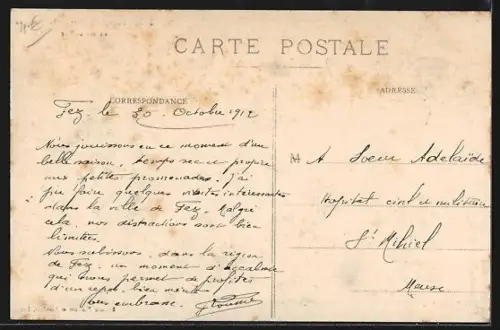 CARTE POSTALE
CORRESPONDANCE
ADRESSE
Fez le 30 Octobre 1912
Nous jouissons en ce moment d'un
belle saison, temps sec et propice
aux petites promenades. J'ai
pu faire quelques visites intéressantes
dans la ville de Fez. Malgré
cela, nos distractions sont bien
limitées.
Nous subissons, dans la région
de Fez, un moment d'accalmie
qui nous permet de profiter
d'un repos bien mérité
Vous embrasse.
M A Soeur Adelaïde
Hopital civil et militaire
St Mihiel
Meuse